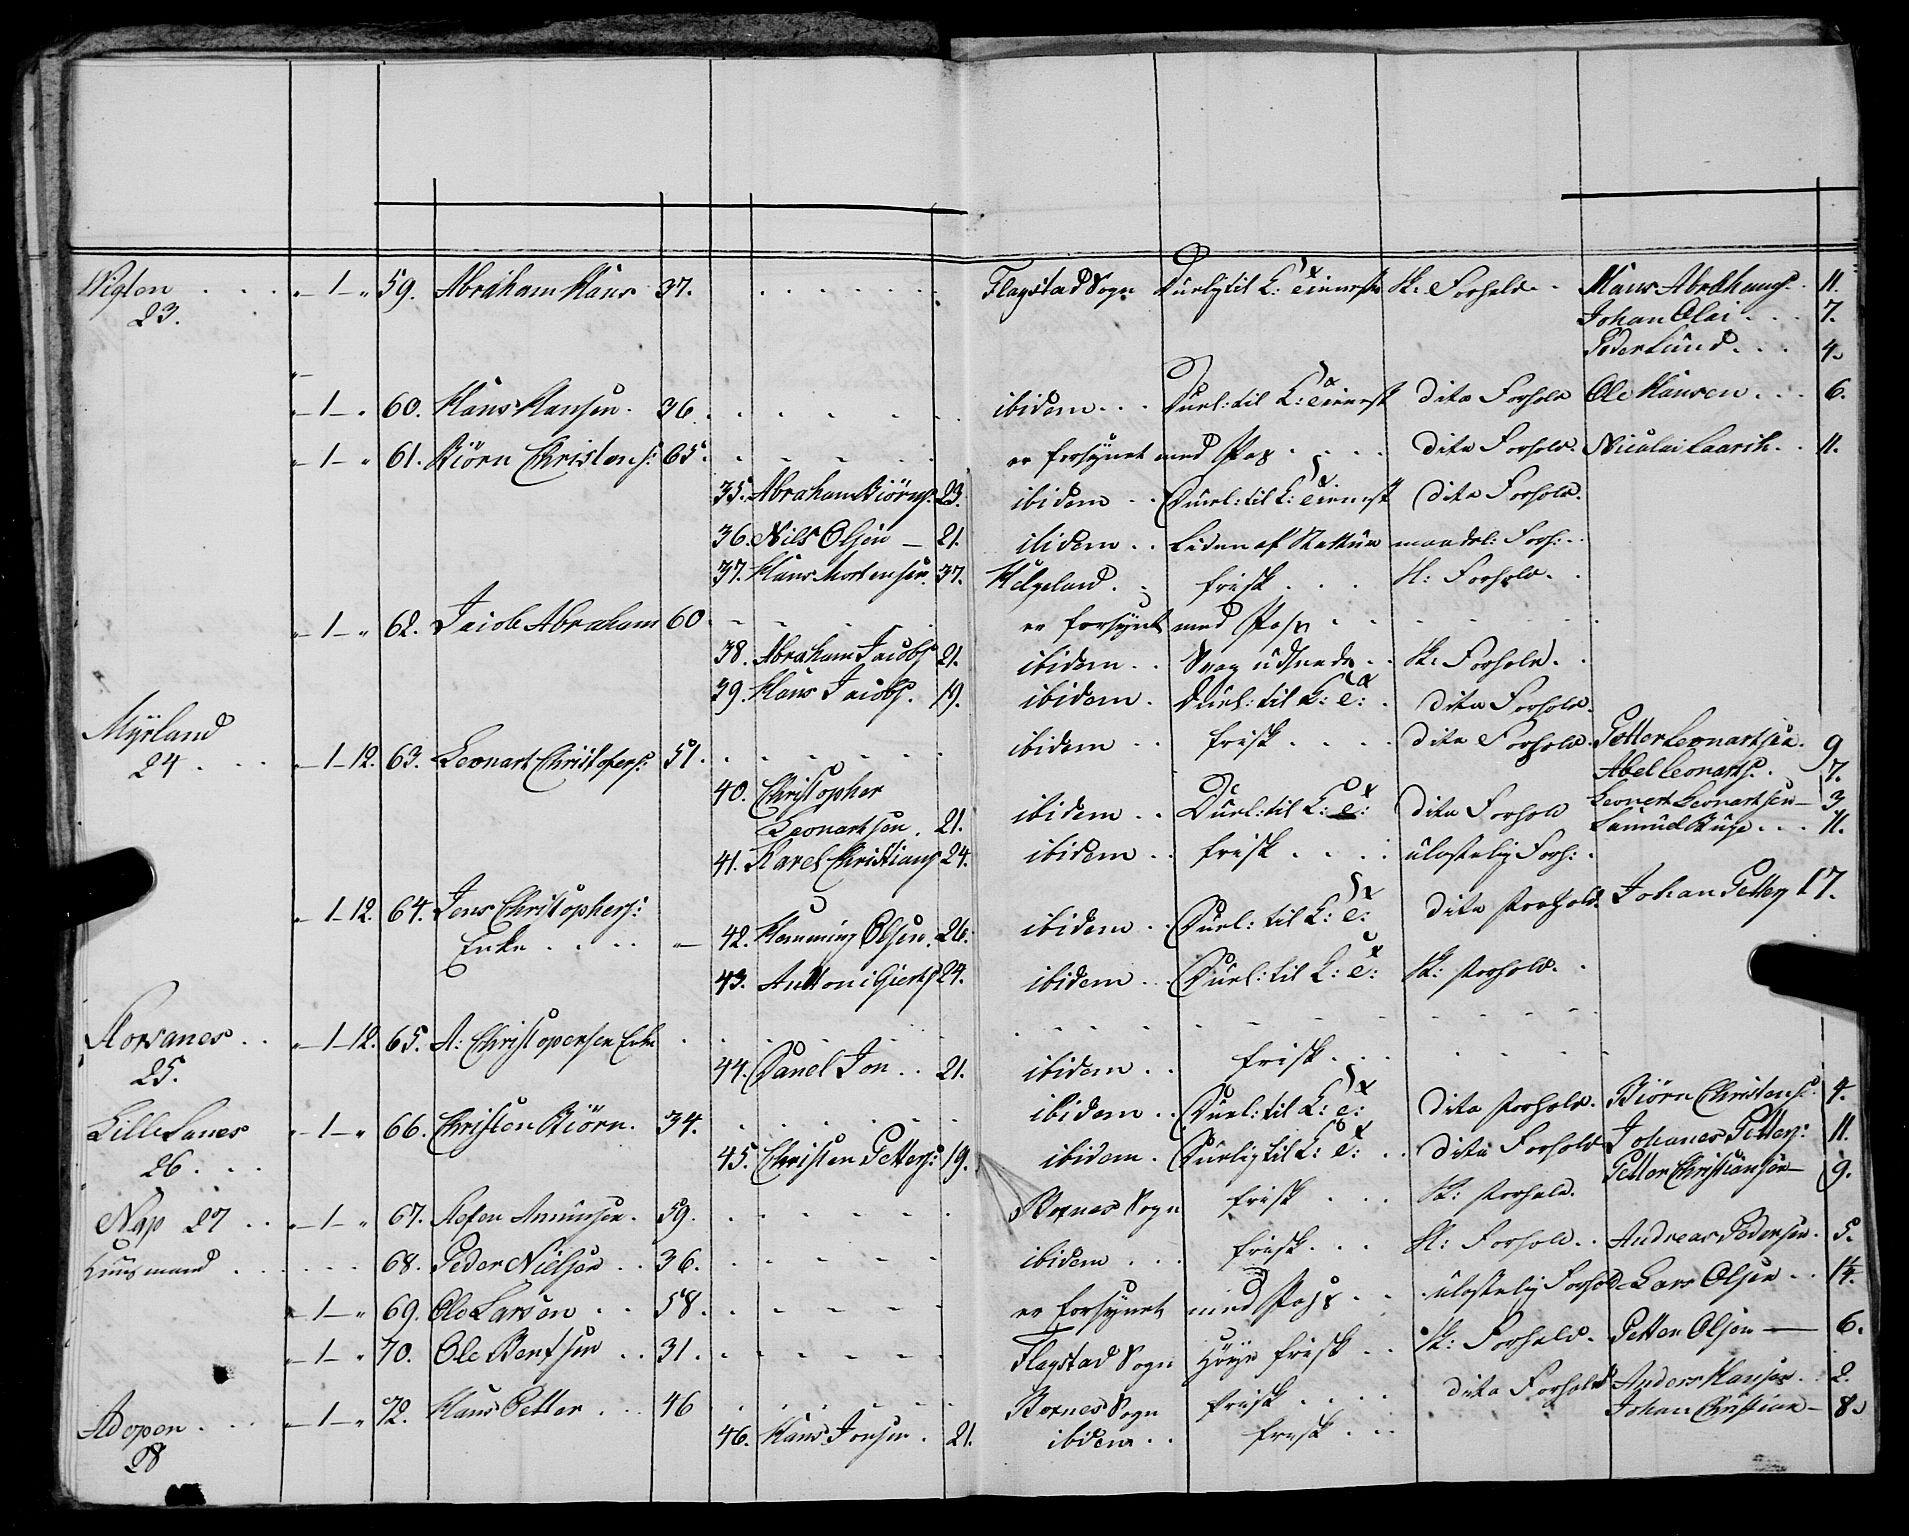 Wigten . . . " 1 " 59. Abraham Hans 37. . . . . . . Flagstad Sogn Duelig til K: Tienneste Sk: Forhold. Hans Abrahams. 11.
23. Johan Olai . . . 7.
Peder Lund . . . 4.
" 1 " 60. Hans Hansen. 36. . . . . . ibidem . . . Duel: til K: Tiennest dito Forhold Ole Hansen . . . 6.
" 1 " 61. Biörn Christens: 65. . . . . . er forsynet med Pas . . . . dito Forhold. Nicolai Laarik . . 11.
35. Abraham Biörns. 23. ibidem . . Duel: til K: Tiennest dito Forhold.
36. Nils Olsen — 21. ibidem . . Liden af maadel: Forh: .
37. Hans Mortensen. 37. Helgeland . frisk . . . Sk: Forhold. .
" 1 " 62. Jacob Abraham 60 . . . . . er forsynt med Pas . . .
38. Abraham Jacobs 21. ibidem . . Svag udseende . . Sk: Forhold. .
39. Hans Jacobs. 19. ibidem . Duel: til K: T: . dito Forhold.
Myrland
24 . . . " 1 12. 63. Leonart Christofers: 51. . . . . . ibidem . . frisk . . . . dito Forhold. Petter Leonartsen. 9
Abel Leonarts. . 7.
40. Christopher
Leonartsen. 21. ibidem . . Duel: til K: T: dito Forhold Leonert Leonartsen — 3.
41. Karel Christians 24. ibidem . . frisk . . . . ulastelig Forh: . Samuel . . . 11.
" 1 12. 64. Jens Christophers:
Enke . . . . — 42. Hemming Olsen. 26. ibidem . . Duel: til K: T: dito Forhold. Johan Petters 17.
43. Anttoni Gierts 24. ibidem . . . Duel: til K: T: Sk: Forhold. .
Storsanes . . " 1 12. 65. A: Christopersen Enke . . . . . .
25. 44. Danel Jon . . 21. ibidem . . frisk . . .
Lille Sanes " 1 " 66. Christen Biörn. 34. . . . . . ibidem . . Duel: til K: T: dito Forhold. Biörn Christens: 4.
26 . . . 45. Christen Petters: 19. ibidem . Duelig til K: T: . . dito Forhold Johanes Petters: 11.
Petter Christiansön — 9.
Nap 27 . . " 1 " 67. Steffen Amunsen. 59. . . . . . Boxnes Sogn frisk . . . Sk: Forhold.
Huusmand . . . . . . 68. Peder Nielsen . . 36. . . . . . ibidem . . . frisk . . . Sk: Forhold. . Andreas Pedersen . 5.
" 1 " 69. Ole Larsen . . 58. . . . . . er forsynet med Pass . . . ulastelig Forhold Lars Olsen . . 14.
" 1 " 70. Ole Bentsen . . 31. . . . . . Flagstad Sogn Höyn frisk . . Sk: Forhold. Petter Olsen — 6.
Adopen . . . " 1 " 72. Hans Petter . . . 46 . . . . . Boxnes Sogn frisk . . . . dito Forhold Anders Hansen . . 2.
28 46. Hans Jonsen . 21. ibidem . . frisk . . . Johan Christian — 8.